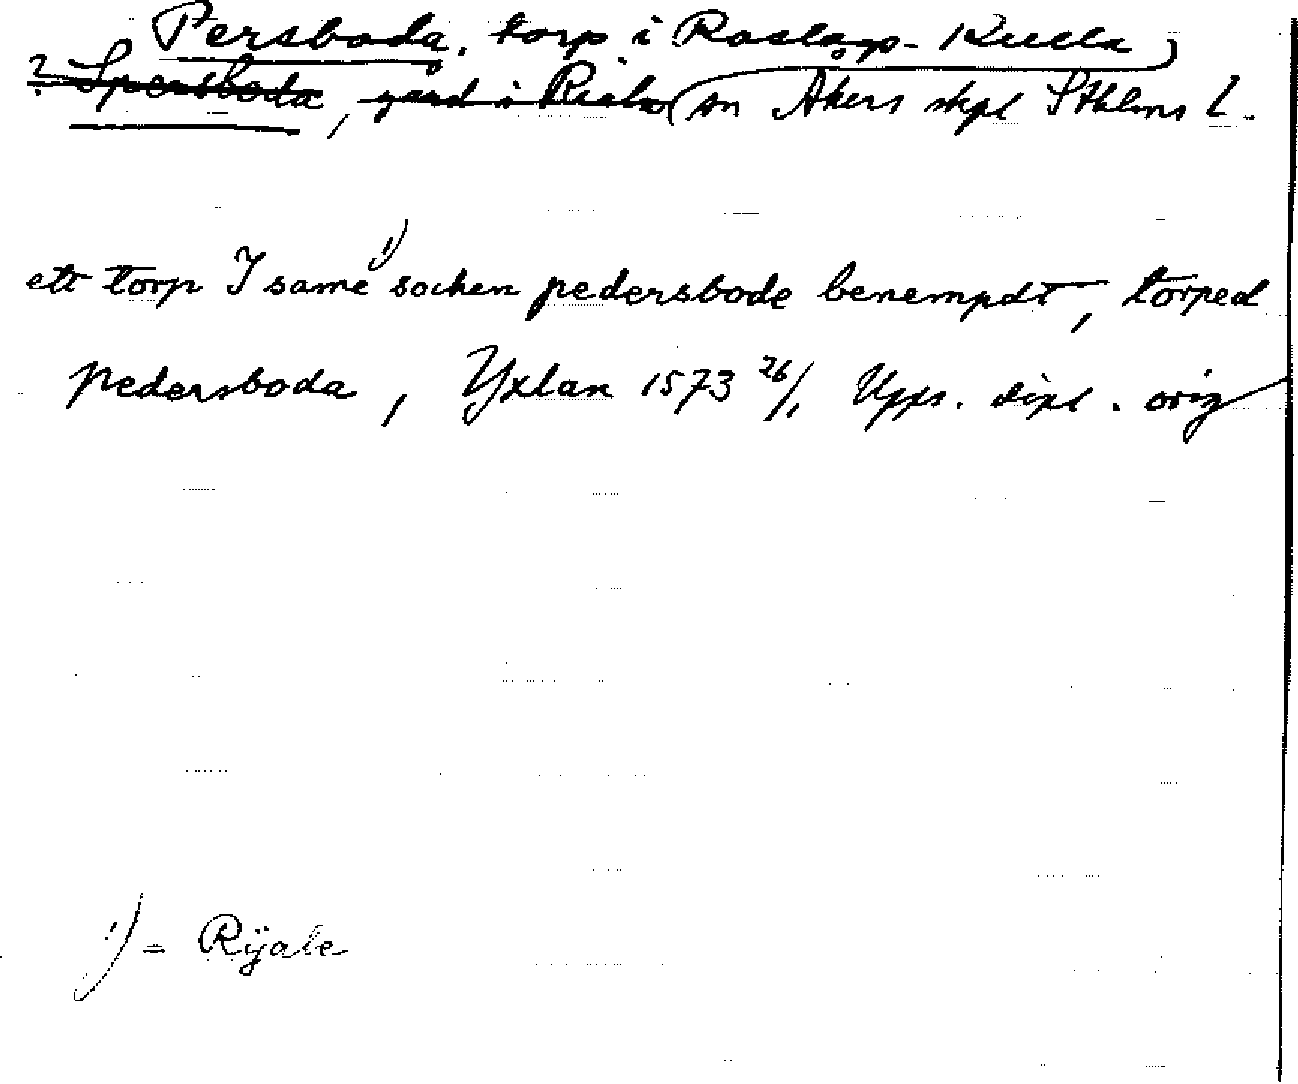 Persboda, torp i Roslags-Kulla
? Spersboda, gård i Riala sn Åkers skpl Sthlms l.
ett torp I same ¹) sochen pedersbode benempdt, torped
pedersboda, Yxlan 1573 26/1 Upps. dipl. orig
¹) = Rÿale